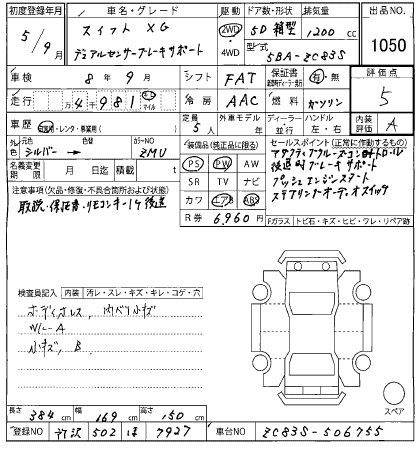 初度登録年月 車名・グレード 駆動 ドア数・形状 排気量 出品NO.
5/9月 スイフト XG 2WD 5D 箱型 1200cc 1050
デュアルセンサーブレーキサポート 4WD 型式 5BA-ZC83S
車検 8年9月 シフト FAT 保証書 有・無 評価点 5
走行 万4千981 km マイル 冷房 AAC 燃料 ガソリン
車歴 自家用・レンタ・事業用( ) 定員 5人 外車モデル 年 ディーラー 並行 ハンドル 左・右 内装 A
外 元色 色替 カラーNO
シルバー → ZMU
装備品(純正品に限る)
PS PW AW
SR TV ナビ
カワ エアB ABS
セールスポイント(正常に作動するもの)
アダプティブクルーズコントロール
後退時ブレーキサポート
プッシュエンジンスタート
ステアリングオーディオスイッチ
名義変更期限 月 日 積載 t
注意事項(欠品・修復・不具合箇所および状態)
取説・保証書・リモコンキー1ケ後送
R券 6,960円
Fガラス トビ石・キズ・ヒビ・ワレ・リペア跡
検査員記入 内装 汚レ・スレ・キズ・キレ・コゲ・穴
小キズ, B
スペア
長さ 384cm 幅 169cm 高さ 150cm
登録NO 502 ほ 7927 車台NO ZC83S-506755